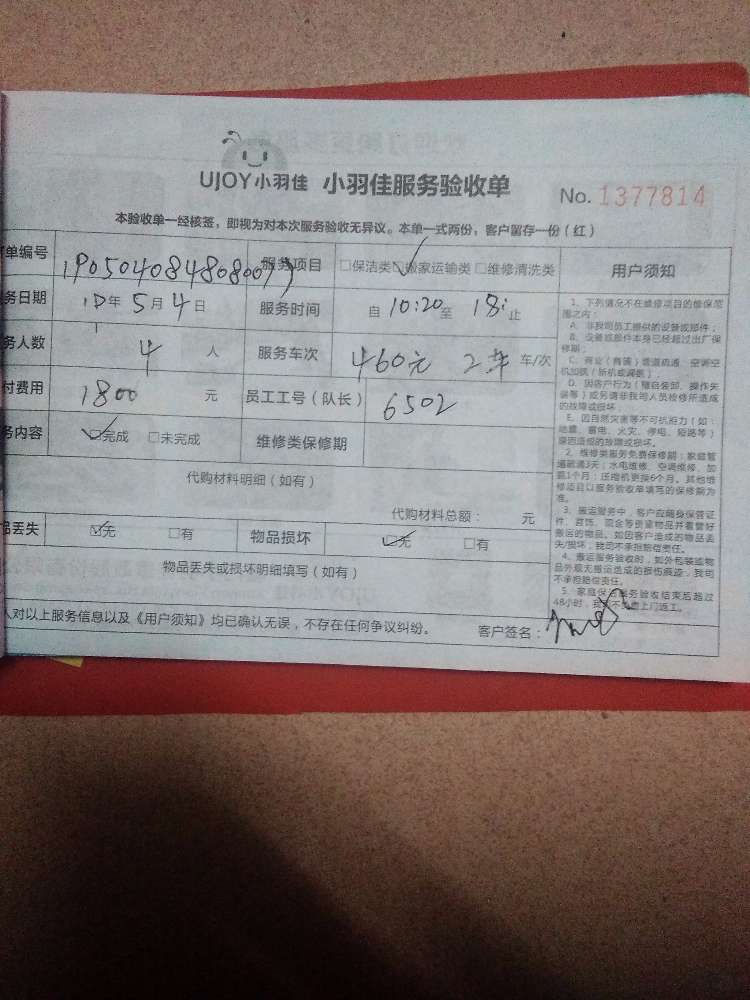 UJOY小羽佳 小羽佳服务验收单
No. 1377814
本验收单一经核签，即视为对本次服务验收无异议。本单一式两份，客户留存一份（红）
单编号 服务项目 □保洁类 ☑搬家运输类 □维修清洗类
务日期 19年5月4日 服务时间 自 10:20 至 18: 止
务人数 4 人 服务车次 460元 2车 车/次
付费用 1800 元 员工工号（队长） 6502
务内容 ☑完成 □未完成 维修类保修期
代购材料明细（如有）
代购材料总额： 元
品丢失 ☑无 □有 物品损坏 ☑无 □有
物品丢失或损坏明细填写（如有）
人对以上服务信息以及《用户须知》均已确认无误，不存在任何争议纠纷。 客户签名：
用户须知
1、下列情况不在维修项目的维保范
围之内：
A、非我司员工提供的设备或部件；
B、设备或部件本身已经超过出厂保
修期；
C、商业（商铺）管道疏通、空调空
机加氟（拆机或漏氟）
D、因客户行为（擅自装卸、操作失
误等）或另请非我司人员检修所造成
的故障或损坏
E、因自然灾害等不可抗拒力（如：
地震、雷电、火灾、停电、短路等）
原因造成的故障或损坏。
2、维修类服务免费保修期：家庭管
道疏通3天；水电维修、空调维修、加
氟1个月；压缩机更换6个月。其他维
修项目以服务验收单填写的保修期为
准。
3、搬运服务中，客户应随身保管证
件、首饰、现金等贵重物品并看管好
搬运的物品。如因客户造成的物品丢
失/损坏，我司不承担赔偿责任。
4、搬运服务验收时，如外包装或物
品外观无搬运造成的损伤痕迹，我司
不承担赔偿责任。
5、家庭保洁服务验收结束后超过
48小时，我司不负责上门返工。